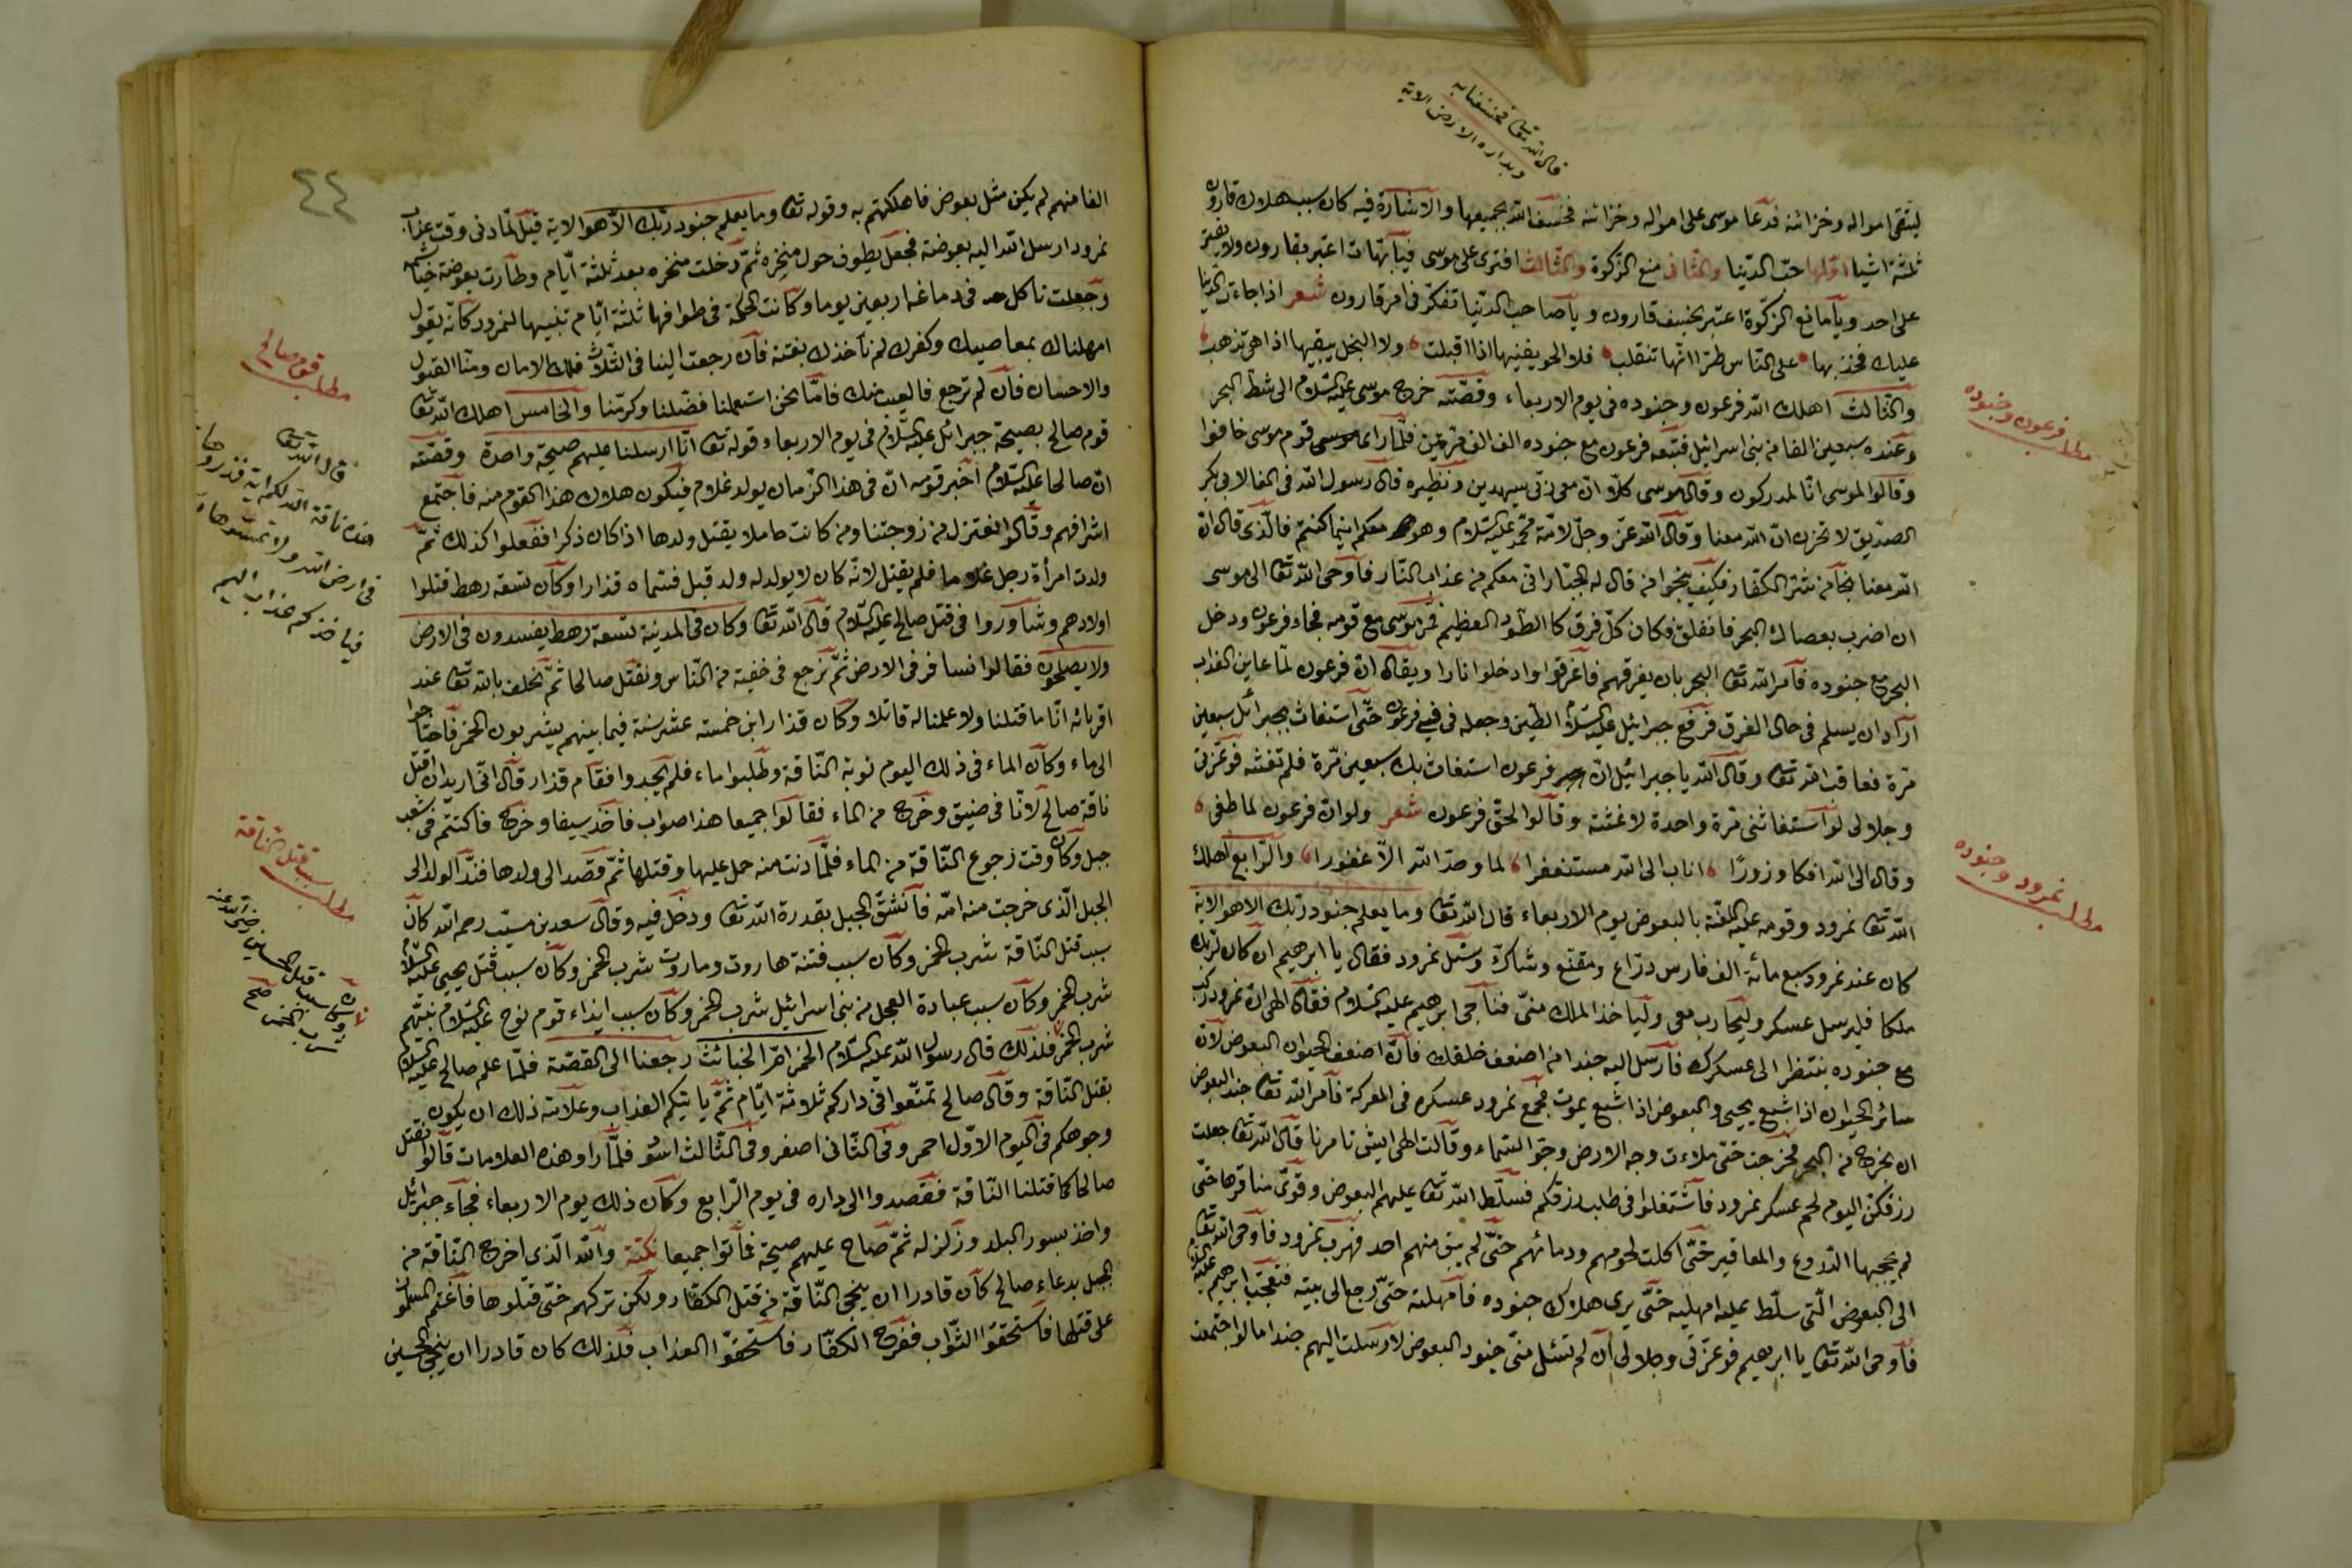 قال الله تعا فخسفنا به
وبداره الارض الاية
ليتقى امواله وخزائنه فدعا موسى على امواله وخزائنه فخسف الله بجميعها والاشارة فيه كان سبب هلاك قارون
ثلثة اشيا اوّلها حبّ الدّنيا والثانى منع الزّكوة والثّالث افترى على موسى فيآ بهتات اعتبر بقارون ولا يفتر
على احد ويآ مانع الزّكوة اعتبر بخسف قارون ويآ صاحب الدّنيا تفكّر فى امر قارون شعر اذا جاءت الدنيا
عليك فجد بها على النّاس طرّا انّها تتقلب فلا الجود يفنيها اذا اقبلت ولا البخل يبقيها اذا هى تذهب
والثّالث اهلك الله فرعون وجنوده فى يوم الاربعاء وقصّته خرج موسى عليه السّلام الى شطّ البحر
مطلب فرعون وجنوده
وعنده سبعين الفا من بنى اسرائيل فتبعه فرعون مع جنوده الف الف فلمّا راى قوم موسى خافوا
وقالوا لموسى انّا لمدركون وقال موسى كلّا انّ معى ربّى سيهدين ونظيره قال رسول الله فى الغار لابى بكر
الصّديق لا تحزن انّ الله معنا وقال الله عزّ وجلّ لامّة محمّد عليه السّلام وهو معكم اينما كنتم فالّذى قال انّ
الله معنا نجآ من شرّ الكفّار فكيف ينجوا من قال له الجبّار انى معكم من عذاب النّار فآوحى الله تعا الى موسى
ان اضرب بعصاك البحر فانفلق فكان كلّ فرق كالطّود العظيم فمرّ موسى مع قومه فجاء فرعون ودخل
البحر مع جنوده فآمر الله تعا البحر بان يغرقهم فآغرقوا وادخلوا نارا ويقال انّ فرعون لمّا عاين العذاب
آراد ان يسلم فى حال الغرق فرفع جبرائيل عليه السّلام الطّين وجعله فى فى فرعون حتّى استغاث بجبرائل سبعين
مرّة فعاتب الله تعا وقال الله يا جبرائيل انّ فرعون استغاث بك سبعين مرّة فلم تغثه فوعزّتى
وجلالى لو استغاثنى مرّة واحدة لاغثته وقالوا لحقّ فرعون شعر ولو انّ فرعون لما طغى
وقال الى الله افكا وزورًا اناب الى الله مستغفرا لما وجد الله الّا غفورا والرّابع اهلك
مطلب نمرود وجنوده
الله تعا نمرود وقومه عليه اللّعنة بالبعوض يوم الاربعاء قال الله تعا وما يعلم جنود ربّك الا هو الاية
كان عند نمرود سبع مائة الف فارس درّاع ومقنّع وشاكّ وسئل نمرود فقال يا ابرهيم ان كان لربّك
ملكا فليرسل عسكر وليحارب معى وليآخذ الملك منّى فناجى ابرهيم عليه السّلام فقال الهى انّ نمرود ركب
مع جنوده ينتظر الى عسكرك فآرسل اليه جندا من اضعف خلقك فآنّ اضعف الحيوان البعوض لانّ
سائر الحيوان اذا شبع يحيى والبعوض اذا شبع يموت فجمع نمرود عسكره فى المعركة فآمر الله تعا جند البعوض
ان يخرج من البحر فخرجت حتّى ملاءت وجه الارض وجوّ السّماء وقآلت الهى ايش تامرنا قال الله تعا جعلت
رزقكن اليوم لحم عسكر نمرود فآشتغلوا فى طلب رزقكم فسلّط الله تعا عليهم البعوض وقوّى مناقرها حتّى
لم يحجبها الدّروع والمغافير حتّى اكلت لحومهم ودمائهم حتّى لم يبق منهم احد فهرب نمرود فآوحى الله تعا
الى البعوض الّتى سلّط عليه امهليه حتّى يرى هلاك جنوده فآمهلته حتّى رجع الى بيته فتعجّب ابرهيم عليه السلام
فآوحى الله تعا يا ابرهيم فوعزّتى وجلالى ان لم تسئل منّى جنود البعوض لارسلت اليهم جندا ما لو اجتمعت
٤٤
الفا منهم لم يكن مثل بعوض فاهلكتهم به وقوله تعا وما يعلم جنود ربّك الّا هو الاية قيل لمّا دنى وقت عذاب
نمرود ارسل الله اليه بعوضة فجعل يطوف حول منخره ثمّ دخلت منخره بعد ثلثة ايّام وطآرت بعوضة خيآشمه
وجعلت تاكل دماغه اربعين يوما وكآنت الحكمة فى طوافها ثلثة ايّام تنبيها لنمرود كآنّه يقول
امهلناك بمعاصيك وكفرك لم نآخذك بغتة فآن رجعت الينا فى الثّلاث فلك الامان ومنّا القبول
والاحسان فآن لم ترجع فالعيب منك فامّا نحن استعملنا فضّلنا وكرمّنا والخامس اهلك الله تعا
مطلب قوم صالح
قوم صالح بصيحة جبرائل عليه السّلام فى يوم الاربعاء قوله تعا انّا ارسلنا عليهم صيحة واحدة وقصّته
انّ صالحا عليه السّلام اخبر قومه انّ فى هذا الزّمان يولد غلام فيكون هلاك هذا القوم منه فآجتمع
اشرافهم وقآلوا نعتزل من زوجتنا ومن كانت حاملا يقتل ولدها اذا كان ذكرا ففعلوا كذلك ثمّ
ولدت امرأة رجل غلاما فلم يقتل لانّه كان لا يولد له ولد قبل فسمّاه قذارا وكآن تسعة رهط قتلوا
اولادهم وشآوروا فى قتل صالح عليه السّلام قال الله تعا وكان فى المدينة تسعة رهط يفسدون فى الارض
قال الله تعا
هذه ناقة الله لكم اية فذروها تاكل
فى ارض الله ولا تمسّوها بسوء
فياخذكم عذاب اليم
ولا يصلحون فقالوا نسافر فى الارض ثمّ نرجع فى خفية من النّاس ونقتل صالحا ثمّ نحلف بالله تعا عند
اقربائه انّا ما قتلنا ولا علمنا له قاتلا وكان قذار ابن خمسة عشر سنة فيما بينهم يشربون الخمر فآحتاجوا
الى ماء وكآن الماء فى ذلك اليوم نوبة النّاقة وطلبوا ماء فلم يجدوا فقام قذار وقال انّى اريد ان اقتل
ناقة صالح لانّا فى ضيق وحرج من الماء فقالوا جميعا هذا صواب فآخذ سيفا وخرج فاكتتم فى شعب
جبل وكان وقت رجوع النّاقة من الماء فلمّا دنت منه حمل عليها وقتلها ثمّ قصد الى ولدها فندّ الولد الى
مطلب سبب قتل الناقة
الجبل الّذى خرجت منه امّه فآنشقّ الجبل بقدرة الله تعا ودخل فيه وقال سعد بن مسيّب رحمه الله كان
سبب قتل النّاقة شرب الخمر وكآن سبب فتنة هاروت وماروت شرب الخمر وكآن سبب قتل يحيى عليه السّلام
شرب الخمر وكآن سبب عبادة العجل من بنى اسرائيل شرب الخمر وكآن سبب ايذاء قوم نوح عليه السّلام نبيّهم
شرب الخمر فلذلك قال رسول الله عليه السّلام الخمر امّ الخبائث رجعنا الى القصّة فلمّا علم صالح عليه السّلام
وكان سبب قتل الحسين رضى الله عنه
شرب الخمر صح
بقتل النّاقة وقال صالح تمتّعوا فى داركم ثلاثة ايّام ثمّ يآتيكم العذاب وعلامته ذلك ان يكون
وجوهكم فى اليوم الاوّل احمر وفى الثّانى اصفر وفى الثّالث اسود فلمّا راو هذه العلامات قالوا نقتل
صالحا كما قتلنا النّاقة فقصدوا الى داره فى يوم الرّابع وكآن ذلك يوم الاربعاء فجآء جبرائل
واخذ بسور البلد وزلزله ثمّ صاح عليهم صيحة فمآتوا جميعا نكتة والله الّذى اخرج النّاقة من
الجبل بدعاء صالح كآن قادرا ان ينجى النّاقة من قتل الكفّار ولكن تركهم حتّى قتلوها فآغتم المسلمون
على قتلها فآستحقّوا الثّواب ففرح الكفّار فاستحقّوا العذاب فلذلك كان قادرا ان ينجى الحسين